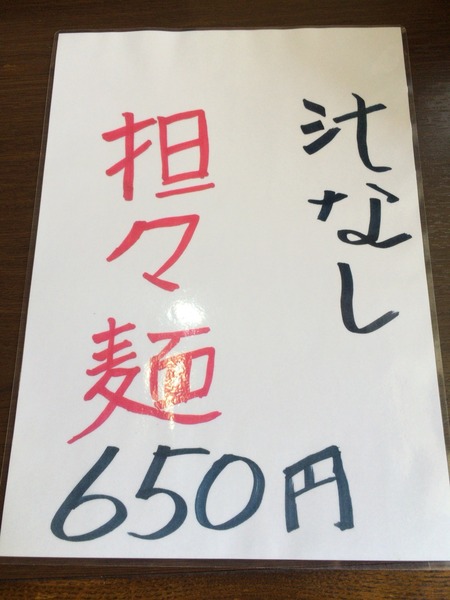 汁なし
担々麺
650円